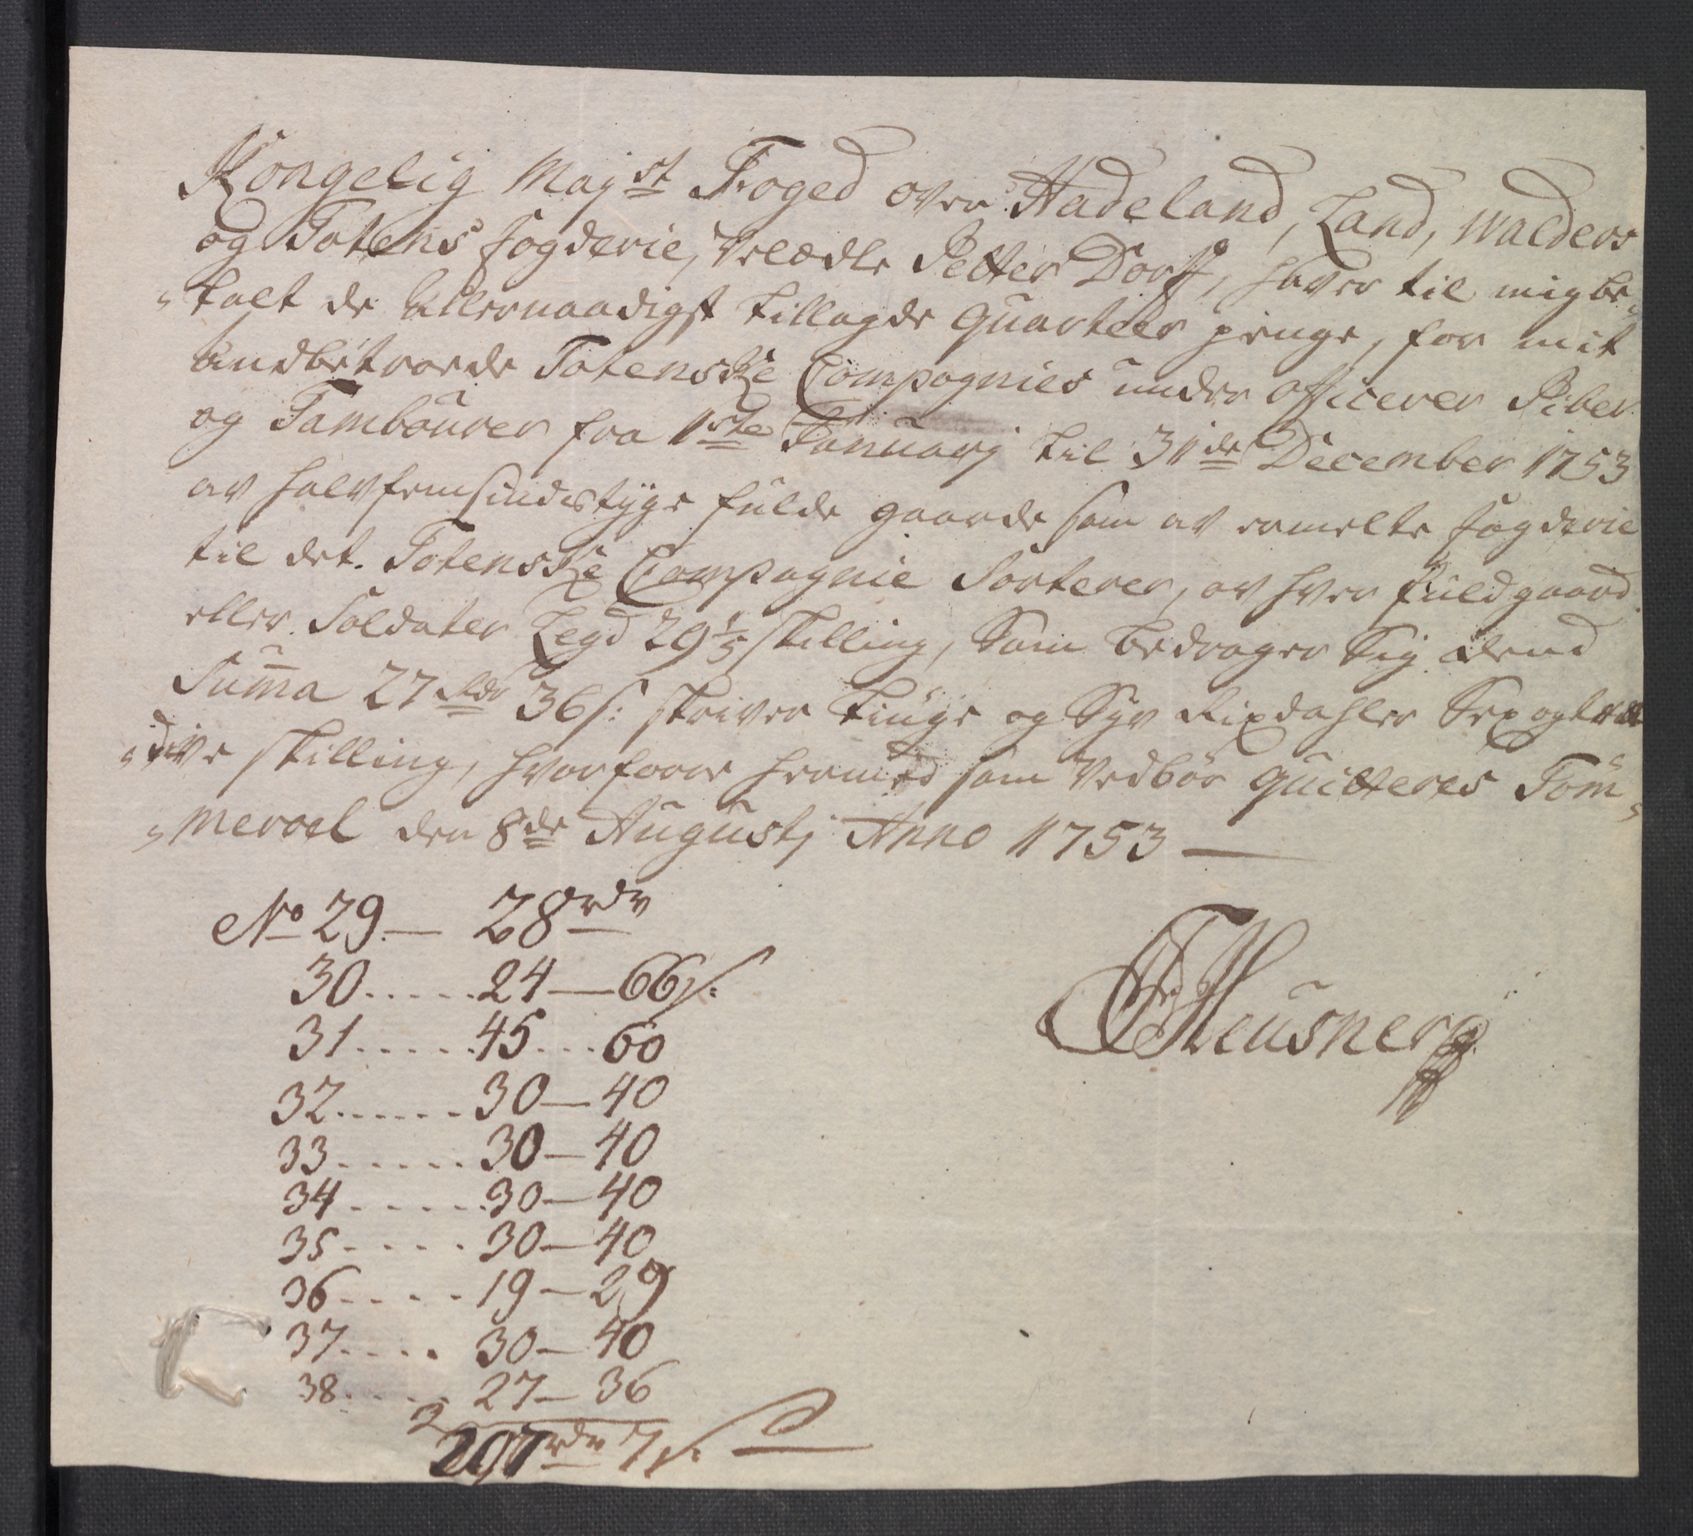 Kongelig Mayst Foged over Hadeland, Land, Walders
og Totens fogderie, Velædle Petter Dorff, haver til mig be,,
,,talt de Allernaadigst tillagde Quarteer penge, for mit
andbetroede Totenske Compagnies under officerer Piber
og Tambourer fra 1ste Januarj til 31de December 1753
av halvfemsindstyge fulde gaarde som av ermelte fogderie
til det Totenske Compagnie Sorterer, av hver fuldgaard
eller Soldater Legd 29 1/5 skilling, Som bedrager Sig dend
Summa 27 Rdr 36 s: skriver tiuge og Syv Rixdahler Sex og tret
,,dive skilling, hvorforre hermed som Vedbör quitteres Töm,,
,,meroel den 8de Augustj Anno 1753
No 29 — 28 rdr
30 ..... 24 — 66 s:
31 ..... 45 ... 60
32 ...... 30 — 40
33 ..... 30 — 40
34 ..... 30 — 40
35 ..... 30 — 40
36 ..... 19 — 29
37 .... 30 — 40
38 .... 27 — 36
297 rdr 7 s.
Heusner